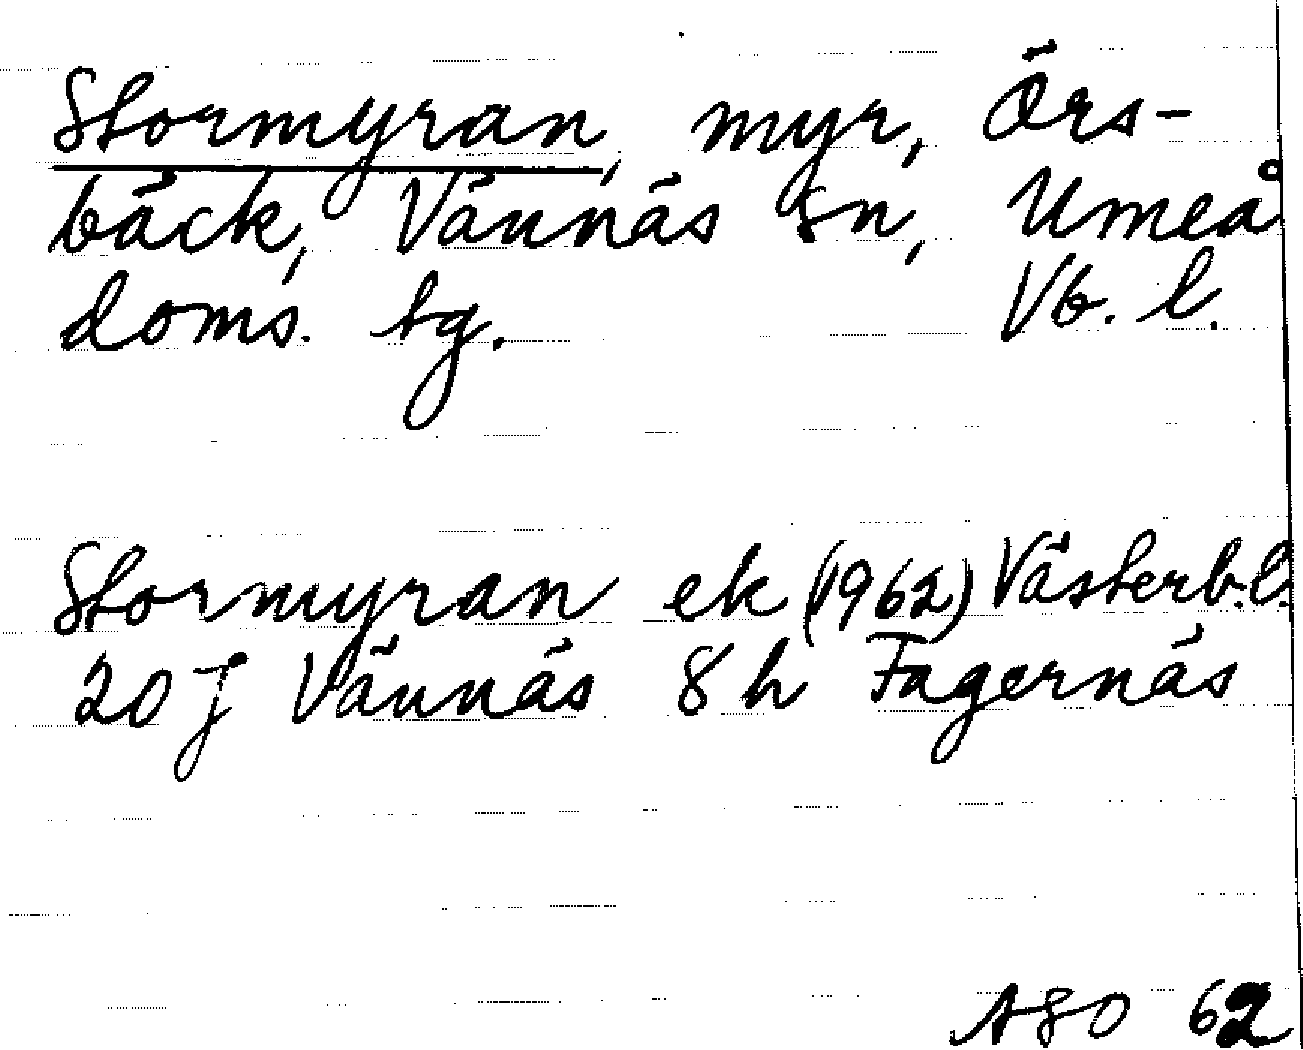 Stormyran, myr, Örs-
bäck, Vännäs sn, Umeå
doms. tg. Vb. l.
Stormyran ek (1962) Västerb. l.
20 J Vännäs 8 h Fagernäs
ASO 62